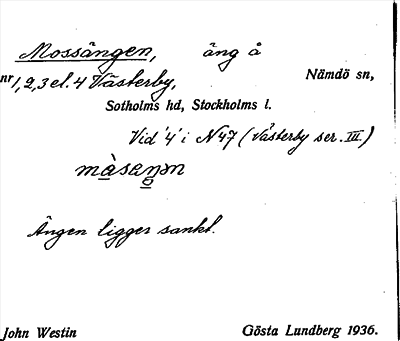 Mossängen, äng å
nr 1,2,3 el. 4 Västerby, Nämdö sn,
Sotholms hd, Stockholms l.
Vid '4' i N47 (Västerby ser. III.)
Ängen ligger sankt.
John Westin Gösta Lundberg 1936.